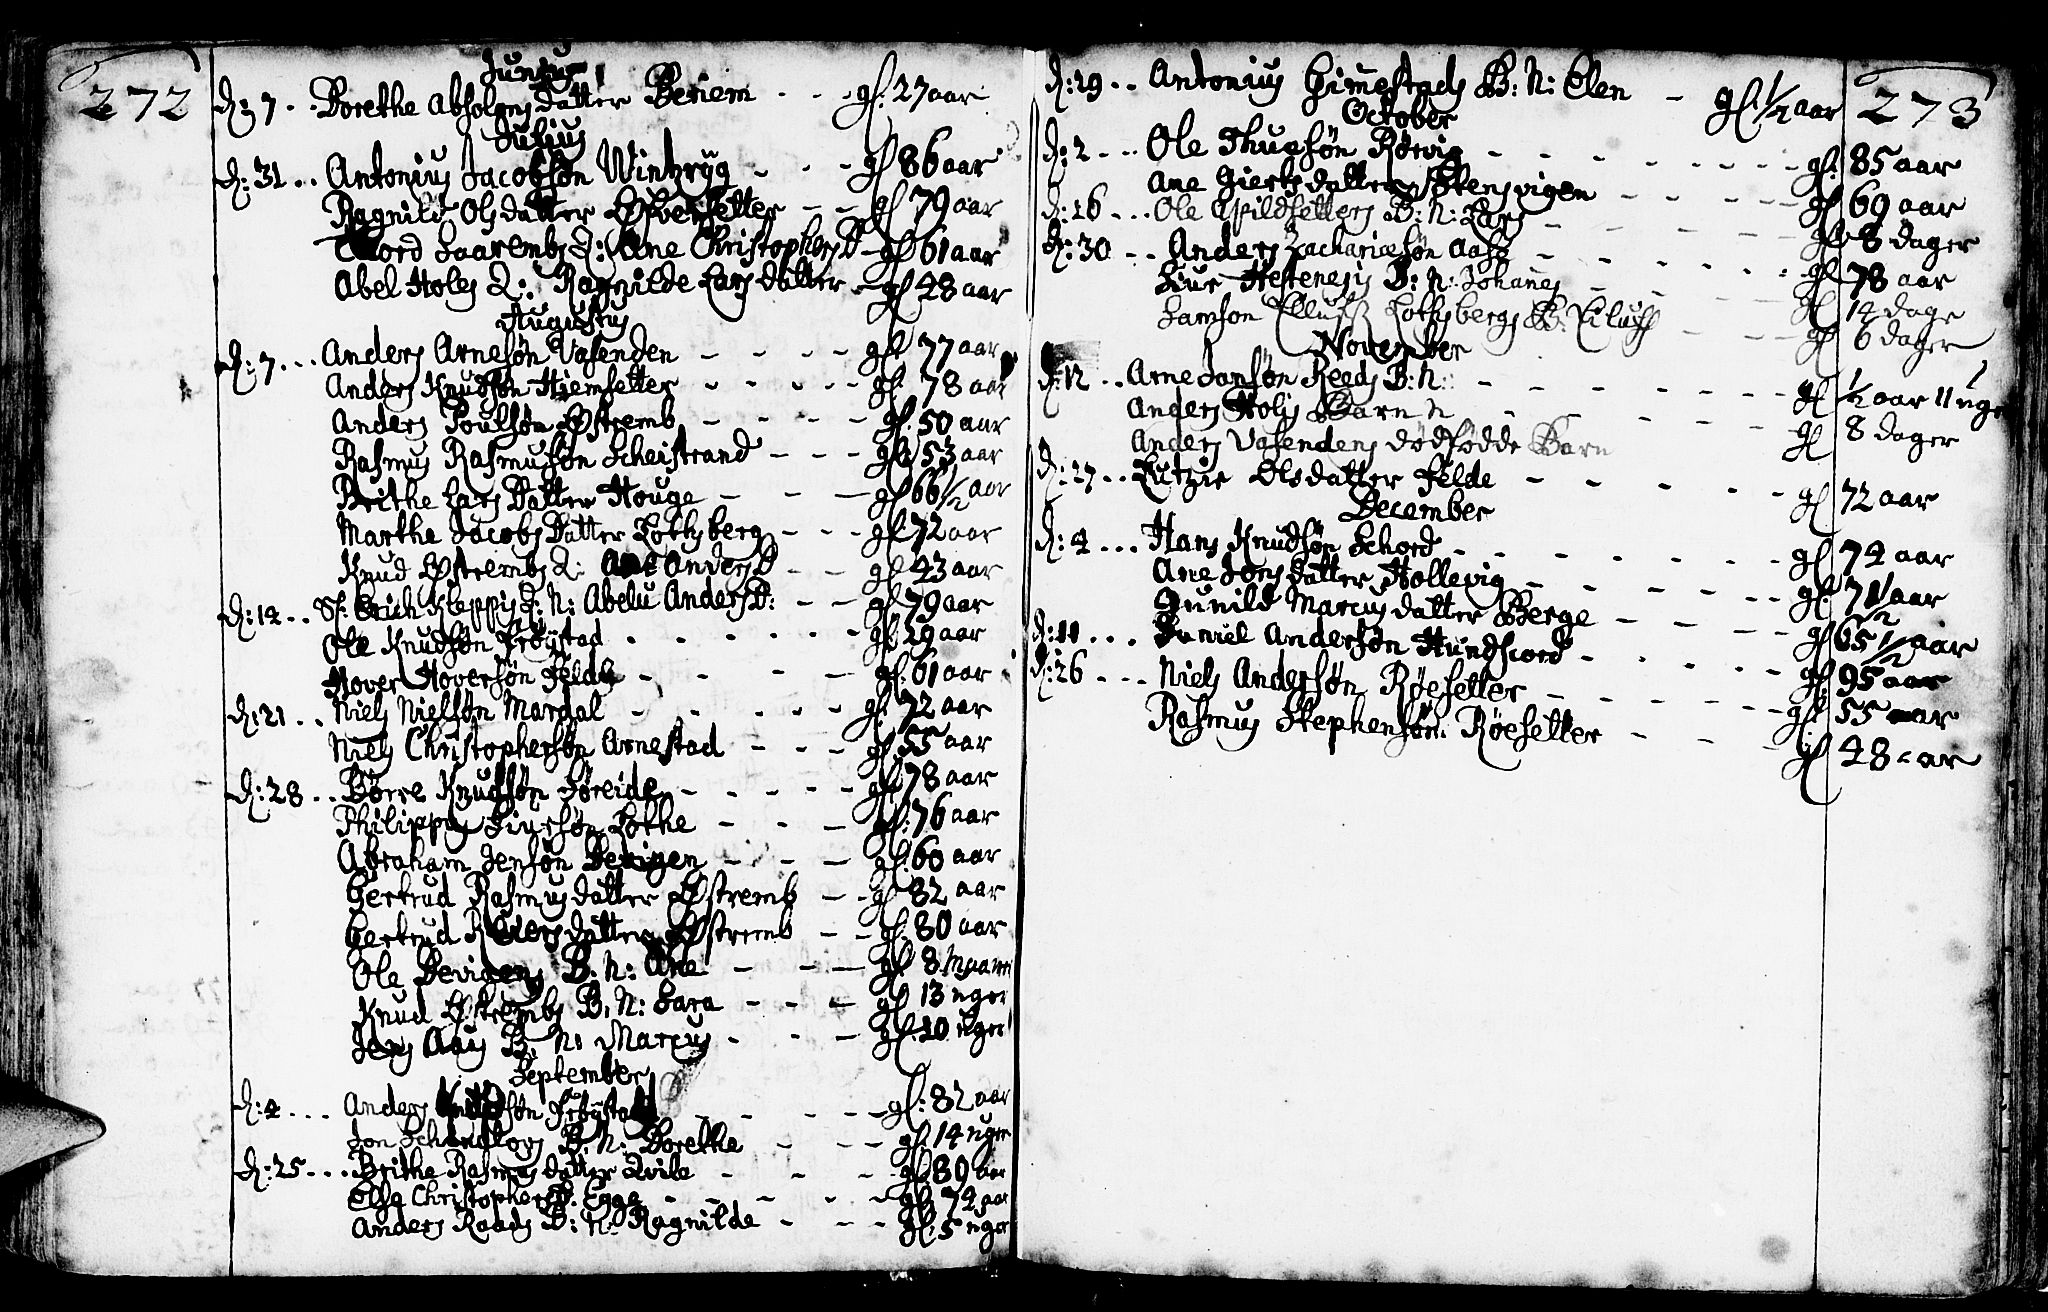 272
Junius
d: 7 - - Dorethe Absolons datter Beriem - - - gl: 27 aar
Julius
d: 31 - - Antonius Jacobsøn Winbryg - - - gl 86 aar
Ragnild Ols datter - - gl 79 aar
Ane Christophers D - gl 61 aar
Abel Holes Q: Ragnilde Lars datter - gl 48 aar
Augustus
d: 7 - - - Anders Arnesøn Vasenden - - - - gl 77 aar
Anders Knudsøn Hjemsetter - - - - - gl: 78 aar
Anders Poulsøn Østremb - - - - gl: 50 aar
Rasmus Rasmusøn Scheistrand - - - gl 53 aar
Brithe Lars Datter Houge - - - gl 66 1/2 aar
Marthe Jacobs Datter Lothsberg - - - gl 72 aar
Knud Østrembs Q: Ane Anders D - - gl 43 aar
d: 14 - - Sl: Erich Kleppis Q: N: Abelu Anders D: - - gl 79 aar
Ole Knudsøn Frøystad - - - - - - gl: 29 aar
Hover Hoversøn Felde - - - - gl: 61 aar
d: 21 - - Niels Nielsøn Mardal - - - - - gl: 72 aar
Niels Christophersøn Arnestad - - - gl 55 aar
d: 28 - - Børre Knudsøn Føreide - - - - - gl 78 aar
Philippus Siursøn Lothe - - - gl: 76 aar
Abraham Jensøn Devigen - - - - gl: 60 aar
Gertrud Rasmus datter Østremb - - gl 82 aar
Gertrud datter Østremb - - gl: 80 aar
Ole Devigens B: N: Ane - - - gl: 8 maan
Knud Østrembs B: N: Sara - - - gl 13 uger
Jens Aaes B: N: Marcus - - - - gl: 10 uger
September
d: 4 - - - Anders - - - gl: 82 aar
Jon B: N: Dorethe - - - - gl. 14 uger
d: 25 - - - Brithe Rasmus datter Qvile - - - - - gl: 89 aar
Elsa Christophers D: Egge - - - - - - gl: 74 aar
Anders Raads B: N: Ragnilde - - - - gl: 5 uger
273
d: 29 - - Antonius Gimestads B: N: Elen - gl 1/2 aar
October
d: 2 - - - Ole Thuesøn Rørvig - - - - - - - - gl: 85 aar
Ane Gierts datter - - - - - gl 69 aar
d: 16 - - - Ole Apildsetters B: N: Lars - - - - - - gl 8 dager
d: 30 - - Anders Zachariæsøn Aase - - - - - - gl 78 aar
Siur Hestenesis B: N: Johanes - - - - - gl 14 dage
Samson Lothsbergs B: - - - gl 6 dager
November
d: 12 - - Arne Jonsøn Reeds B: N: - - - - - - gl 1/2 aar 11 uger
Anders Holis Barn N - - - - - - gl 8 dager
Anders Vasendens dødfødde Barn gl
d: 27 - - Olsdatter Felde - - - - - - gl 72 aar
December
d: 4 - - - Hans Knudsøn Schord - - - - - - gl 74 aar
Ane Jons datter Hollevig - - - - - - gl: 71 1/2 aar
Gunild Marcus datter Berge - - - - gl 65 1/2 aar
d: 11 - - - Daniel Andersøn Hundscord - - - - - gl 95 aar
d: 26 - - - Niels Andersøn Røesetter - - - - - - gl: 55 aar
Rasmus Stephensøn Røesetter - - - - gl 48 aar